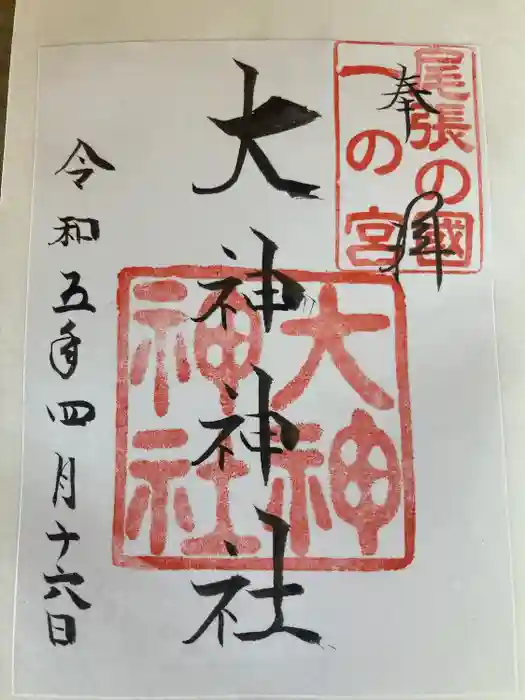 尾張の國
一の宮
奉拝
大神神社
大神
神社
令和五年四月十六日